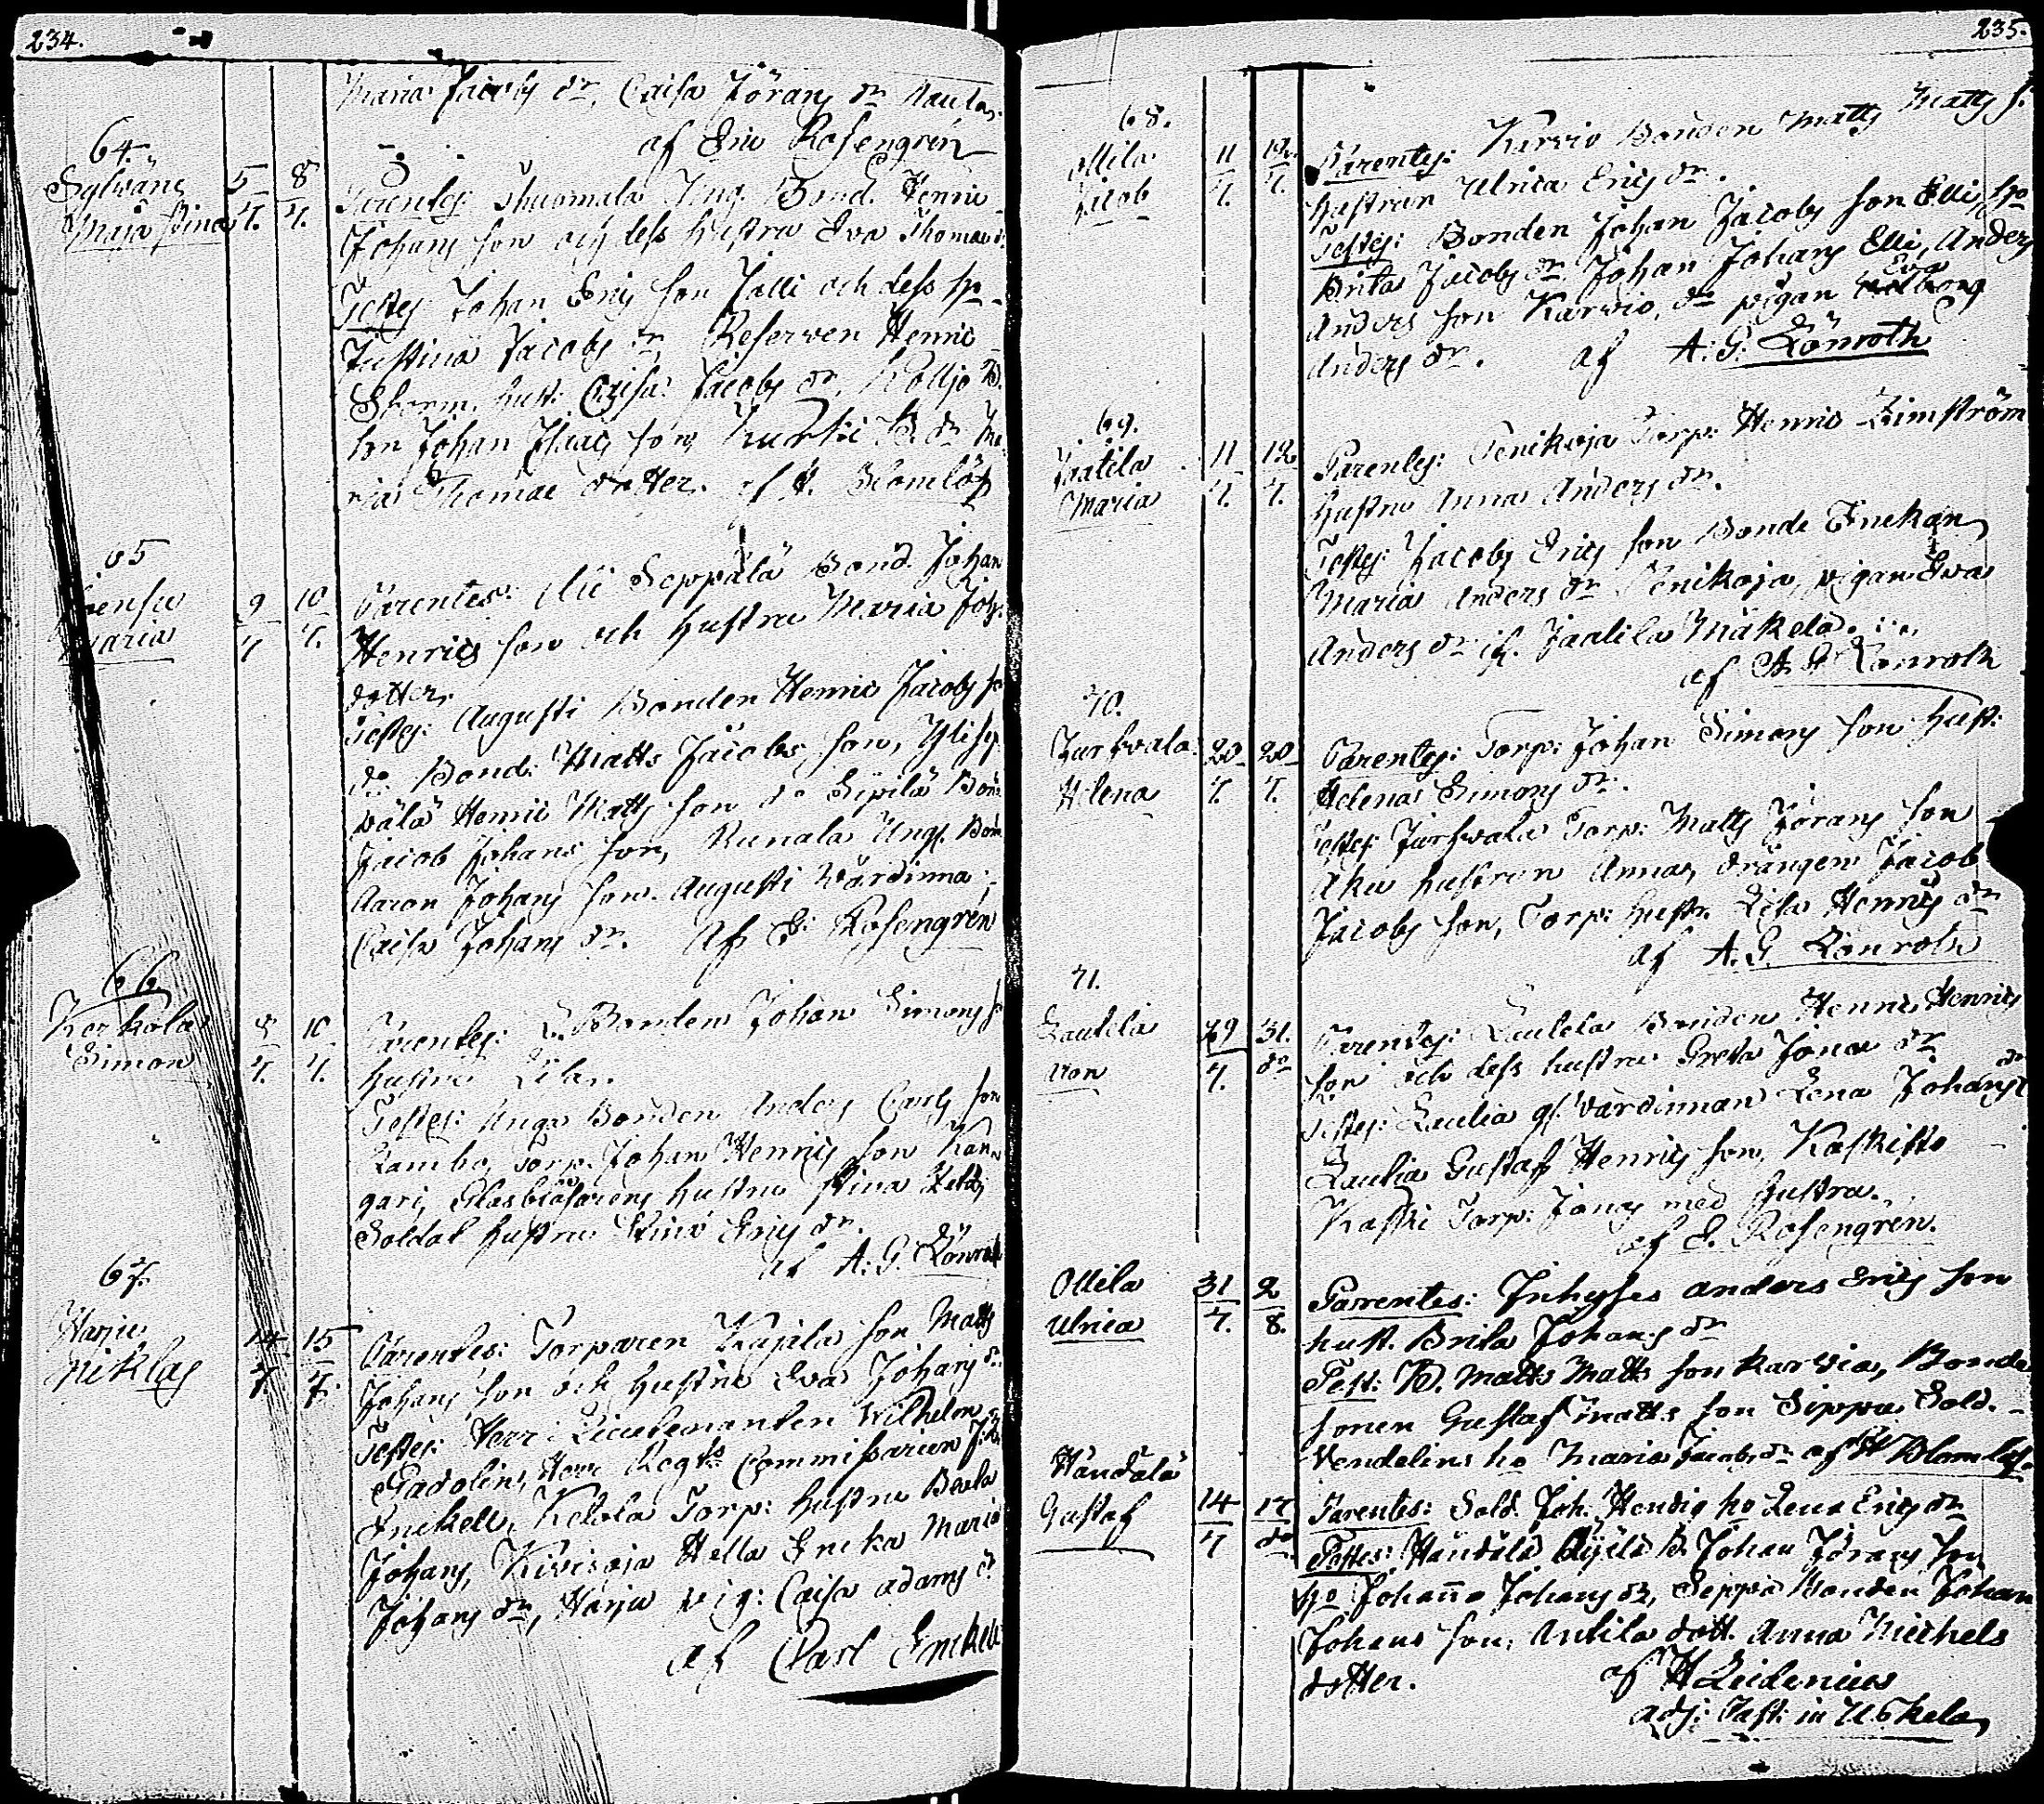 234.
Maria Jacobs dr, Caisa Jörans dr Nautas
af Eric Rosengren
64.
Sylwäne 5 8
Maja Stina 7. 7.
Parentes: Thuomala Yng. Bond. Henric
Johans son och dess hustru Eva Thomae dr
Testes Johan Erics son Jalli och dess ho
Justina Jacobs dr Reserven Henric
Storm, hust: Caisa Jacobs dr, Kollja B.
son Johan Isaacs son, Kurki B. dr Ma-
ria Thomae dotter. af H. Blomlöf
65
9 10
Maria 7 7.
Parentes: Seppälä Bond. Johan
Henrics son och hustru Maria Joh.
dotter.
Testes: Augusti Bonden Henric Jacobs so
do Bond: Matts Jacobs son, Ylisip
wälä Henric Matts son do Sipilä Bon
Jacob Johans son, Runala Yngr. Bon
Aaron Johans son. Augusti Wärdinna
Caisa Johans dr. af E: Rosengrén
66.
Kerkola 8 10
Simon 7. 7.
Parentes: Bonden Johan Simons s
hustru Lisa.
Testes: Unga Bonden Anders Carls son
Lambo, Torp. Johan Henrics son Kan-
gari, Glasblåsarens hustru Stina
Soldat hustru Stina Erics dr.
af A. G. Lönroth
67.
Harju 14 15
Niklas 7 7.
Parentes: Torparen Kujila son Matts
Johans son och hustru Eva Johans dr
Testes: Herr Lieutenanten Wilhelm
Gadolin, Herr Regts Commissarien
Enckell, Ketola Torp: hustru Beata
Johans, Kivisoja Hella Enka Maria
Johans dr, Harju pig: Caisa Adams d.
af Carl Enckell
235.
68.
Ollila 11 12
Jacob 7. 7.
Parentes: Karvio Bonden Matts Matts s.
hustrun Ulrica Erics dr.
Testes: Bonden Johan Jacobs son Elli, ho
Brita Jacobs dr Johan Johans Elli, Anders
Anders son Karvio, dr pigan Eva
Anders dr. af A: G: Lönroth
69.
Jaatila 11 12
Maria 7. 7.
Parentes: Penikoja Torp: Henric Limström
hustru Anna Anders dr.
Testes: Jacobs Erics son Bonde
Maria Anders dr Penikoja, pigan Eva
Anders dr if. Jaatila Mäkelä.
af A G Lönroth
70.
20 20
Helena 7. 7.
Parentes: Torp: Johan Simons son hust:
Helena Simons dr.
Testes Torp: Matts Jörans son
Aku hustrun Anna, drängen Jacob
Jacobs son, Torp: hustr. Lisa Henrics dr
af A. G. Lönroth
71.
Laulela 29 31.
Aron 7. do
Parentes: Laulela Bonden Henric Henrics
son och dess hustru Greta Jonae dr
Testes: Laulia gl. Värdinnan Lena Johans dr
Laulia Gustaf Henrics son, Kaskisto
Kaski Torp: Jonas med hustru.
af E. Rosengrén.
Ollila 31 2
Ulrica 7. 8.
Parentes: Inhyses Anders Erics son
hust. Brita Johans dr
Test: B. Matts Matts son Karvio, Bonde
sonen Gustaf Matts son Sippu Sold.
Vendelins ho Maria Jacobs dr af H Blomlöf.
Händälä
Gustaf 14 17
7 do
Parentes: Sold. Joh. Hendig ho Lena Erics dr
Testes: Händälä B. Johan Jörans son
ho Johanna Johans dr, Seppä Bonden Johan
Johans son, Antila dott. Anna Michels
dotter. af H Zeidenius
adj: Past: in Uskela